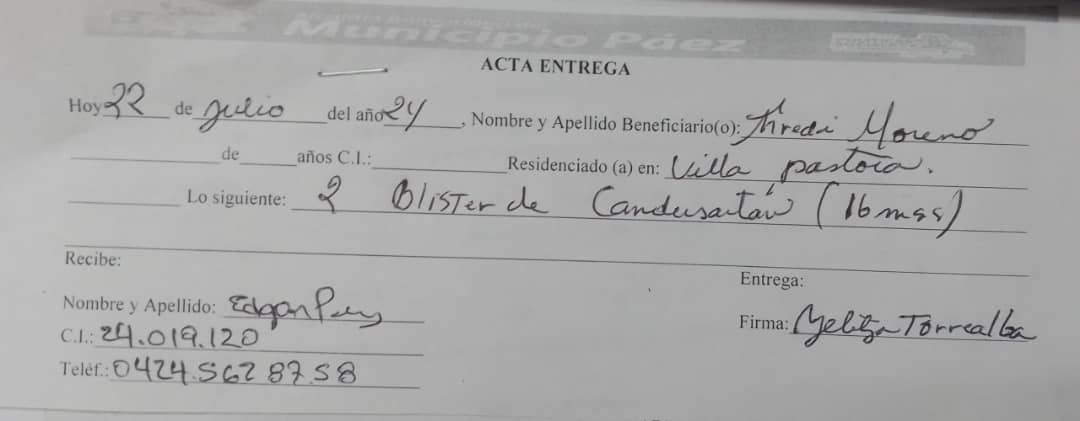 Municipio Páez
ACTA ENTREGA
Hoy 22 de Julio del año 24, Nombre y Apellido Beneficiario(o): Moreno
de años C.I.: Residenciado (a) en: Villa pastora.
Lo siguiente: 2 Blister de Candesartán (16 mgs)
Recibe:
Entrega:
Nombre y Apellido: Edgar
Firma: Yelitza Torrealba
C.I.: 24.019.120
Teléf.: 0424.5628758